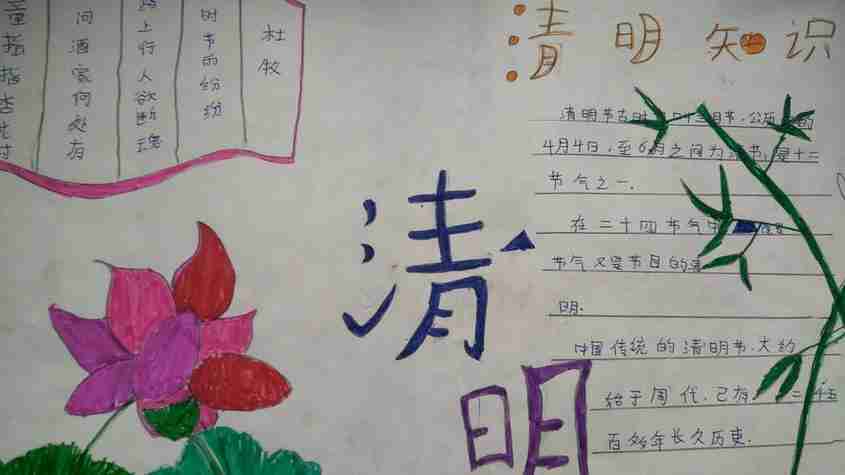 杜牧
时节雨纷纷
路上行人欲断魂
问酒家何处有
童指
清明知识
清明节古时
4月4日，至6月之间为清节，是十二
节气之一．
在二十四节气中
节气又是节日的
明．
中国传统的清明节．大约
始于周代，已有二千五
百多年长久历史．
清
明